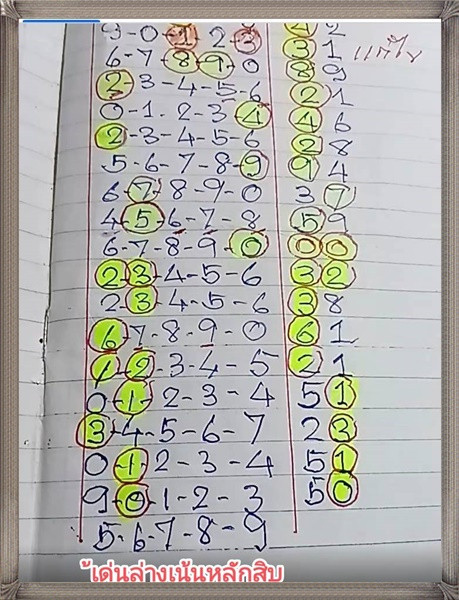 4 2
9-0-1 2 3 3 1 แก้ไข
6-7-8-9-0 8 9
2 3-4-5-6 2 1
0-1-2-3 4 4 6
2-3-4-5-6 2 8
5-6-7-8-9 9 4
6-7-8-9-0 3 7
4-5-6-7-8 5 9
6-7-8-9-0 0 0
2-3-4-5-6 3 2
2 3 4-5-6 3 8
6-7-8-9-0 6 1
1-2-3-4-5 2 1
0-1-2-3-4 5 1
3-4-5-6-7 2 3
0-1-2-3-4 5 1
9-0-1-2-3 5 0
5-6-7-8-9
้เด่นล่างเน้นหลักสิบ